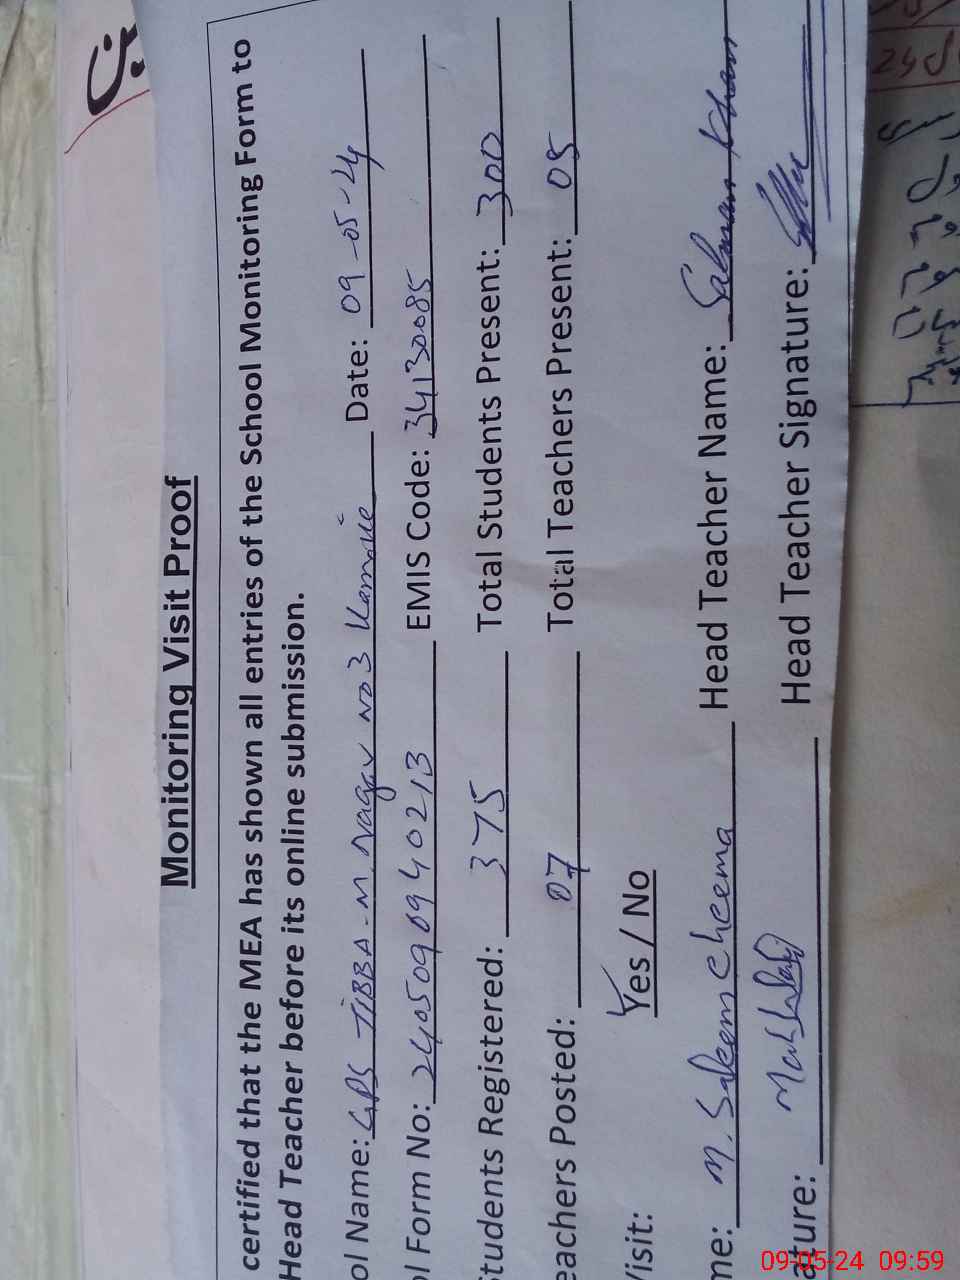 Monitoring Visit Proof
certified that the MEA has shown all entries of the School Monitoring Form to
Head Teacher before its online submission.
ol Name: GPS TIBBA-M. Nagar No 3 Date: 09-05-24
ol Form No: 24050909940213 EMIS Code: 34130085
Students Registered: 375 Total Students Present: 300
eachers Posted: 07 Total Teachers Present: 05
Visit: Yes / No
me: M. Saleem Cheema Head Teacher Name: Salman Khan
ature: Head Teacher Signature:
09-05-24 09:59